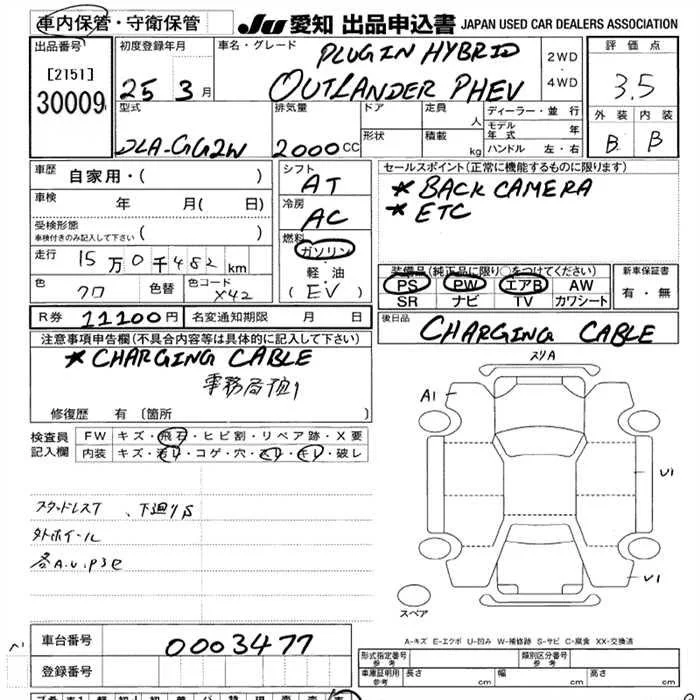 車内保管・守衛保管
JU 愛知 出品申込書 JAPAN USED CAR DEALERS ASSOCIATION
出品番号
[2151]
30009
初度登録年月
25 3月
車名・グレード
PLUG IN HYBRID
OUTLANDER PHEV
2WD
・
4WD
評価点
3.5
外装 内装
B B
型式
DLA-GG2W
排気量
2000CC
ドア
形状
定員 人
積載 kg
ディーラー・並行
モデル年式 年
ハンドル 左・右
車歴 自家用・( )
車検 年 月( 日)
受検形態
車検付きのみ記入して下さい ( )
走行 15万0千482km
色 クロ 色替 色コード X42
シフト
AT
冷房
AC
燃料
ガソリン
・
軽油
(EV)
セールスポイント(正常に機能するものに限ります)
* BACK CAMERA
* ETC
装備品(純正品に限り○をつけてください)
PS PW エアB AW
SR ナビ TV カワシート
新車保証書
有・無
R券 11100円 名変通知期限 月 日
後日品
CHARGING CABLE
注意事項申告欄(不具合内容等は具体的に記入して下さい)
* CHARGING CABLE
事務局預り
修復歴 有 〔箇所 〕
検査員記入欄
FW キズ・飛石・ヒビ割・リペア跡・X要
内装 キズ・汚レ・コゲ・穴・スレ・キレ・破レ
スタッドレスT 、下廻りS
外ホイール
各A.U.P3e
スリA
A1
U1
U1
スペア
A-キズ E-エクボ U-凹み W-補修跡 S-サビ C-腐食 XX-交換済
車台番号 0003477
登録番号
形式指定番号 参考
類別区分番号 参考
車庫証明用 参考 長さ 幅 高さ